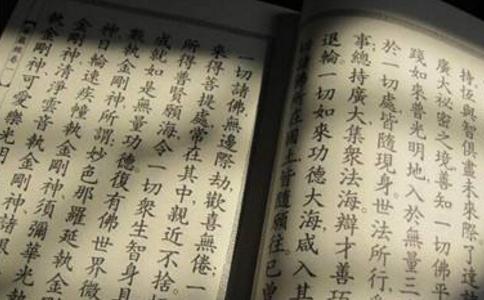 持恆與智俱盡未來際了達諸
廣大秘密之境善知一切佛平
踐如來普光明地入於無量三
於一切處皆隨現身世法所行
事總持廣大集眾法海辯才善巧
退輪一切如來功德大海咸入其
切諸佛所在國土皆隨願往已曾
一切諸佛無邊際劫歡喜無倦一
來得菩提處常在其中親近不捨
所得普賢願海令一切眾生智身具
成就如是無量功德復有佛世界微
數執金剛神所謂妙色那羅延執金
神日輪速疾幢執金剛神須彌華光執
金剛神清淨雲音執金剛神諸根
執金剛神可愛樂光明